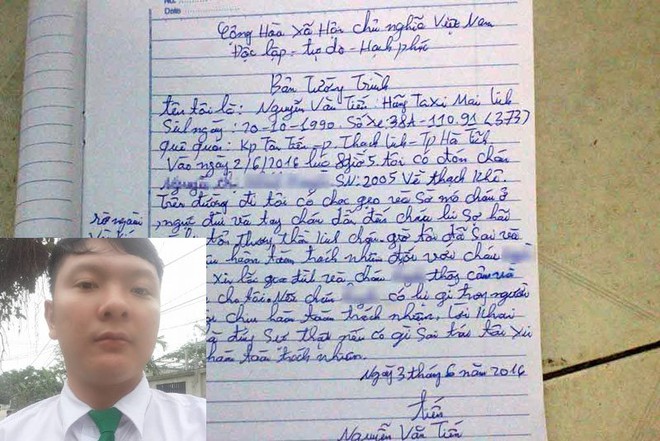 No.
Date
Cộng Hòa Xã Hội chủ nghĩa Việt Nam
Độc lập - tự do - Hạnh phúc
Bản Tường Trình
Tên tôi là: Nguyễn Văn Tiến Hãng Taxi Mai Linh
Sinh ngày: 20-10-1990 Số Xe: 38A-110.91 (373)
quê quán: Kp Tân Tiến - p. Thạch Linh - Tp Hà Tĩnh
Vào ngày 2/6/2016 lúc 8giờ5 tôi có đón cháu
Nguyễn Th SN: 2005 Về Thạch Khê.
Trên đường đi tôi có chọc gẹo và Sờ mó cháu ở
ngực đùi và tay cháu dẫn đến cháu bị Sợ hãi
tổn thương thân thể cháu giờ tôi đã Sai và
hoàn toàn trách nhiệm đối với cháu
Xin lỗi gia đình và cháu thông cảm và
cho tôi. Nếu cháu có bị gì trong người
chịu hoàn toàn trách nhiệm, Lời khai
là đúng Sự thật nếu có gì Sai trái tôi xin
hoàn toàn trách nhiệm.
Ngày 3 tháng 6 năm 2016
Tiến
Nguyễn Văn Tiến